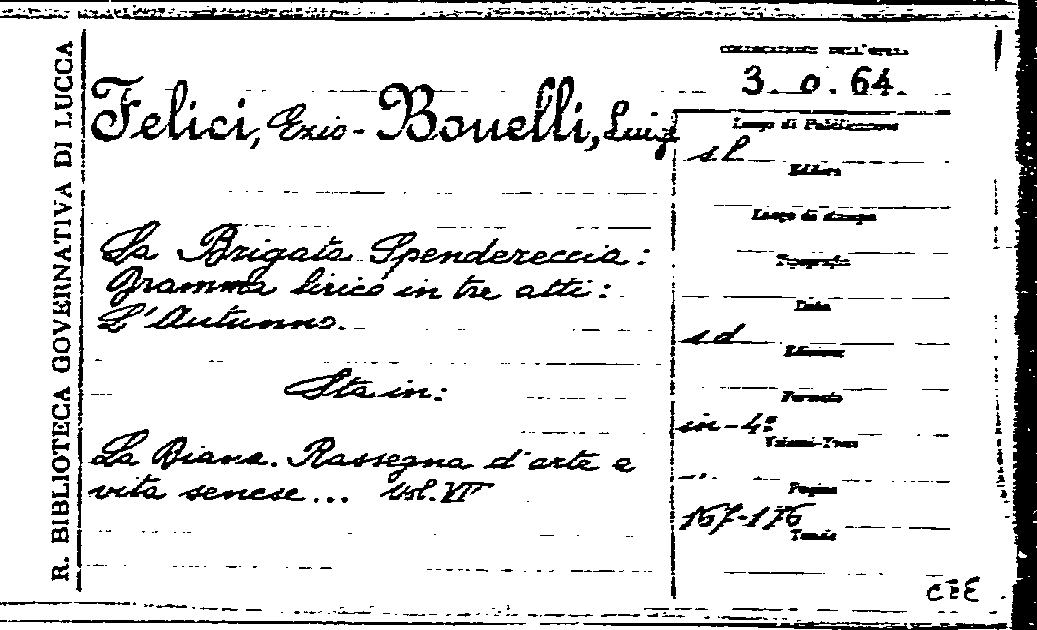 R. BIBLIOTECA GOVERNATIVA DI LUCCA
COLLOCAZIONE DELL'OPERA
3. o. 64.
Felici, Ezio - Bonelli, Luigi
La Brigata Spendereccia:
Dramma lirico in tre atti:
L'Autunno.
Sta in:
La Diana. Rassegna d'arte e
vita senese... Vol. VII
Luogo di Pubblicazione
s l
Editore
Luogo di stampa
Tipografia
Data
s d
Edizione
Formato
in-4°
Volumi-Tomi
Pagine
167-176
Tavole